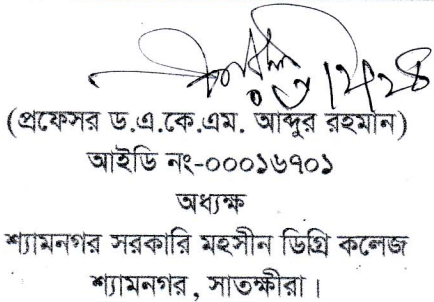 (প্রফেসর ড.এ.কে.এম. আব্দুর রহমান)
আইডি নং-০০০১৬৭০১
অধ্যক্ষ
শ্যামনগর সরকারি মহসীন ডিগ্রি কলেজ
শ্যামনগর , সাতক্ষীরা।